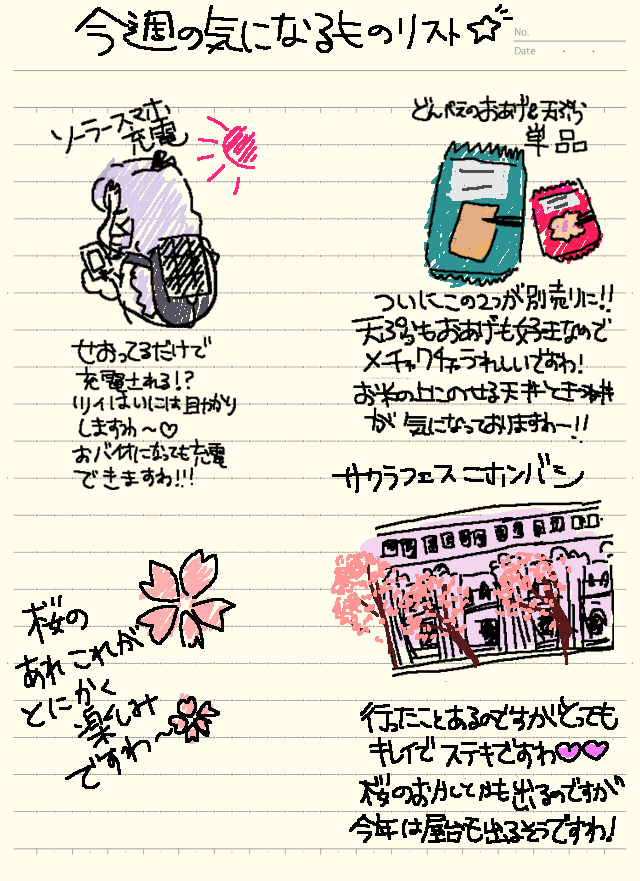 今週の気になるものリスト☆
No.
Date
ソーラースマホ
充電
せおってるだけで
充電される!?
ツイはいには助かり
しますわ〜♡
おバイオになっても充電
できますわ!!!
どんべえのおあげと天ぷら
単品
ついにこの2つが別売りに!!
天ぷらもおあげも好きなので
メチャクチャうれしいですわ!
お米の上にのせる天丼ときつね丼
が気になっておりますわー!!
サクラフェスニホンバシ
行ったことあるのですがとっても
キレイでステキですわ♥♥
桜のおかしとかも出るのですが
今年は屋台も出るそうですわ!
桜の
あれこれが
とにかく
楽しみ
ですわ〜